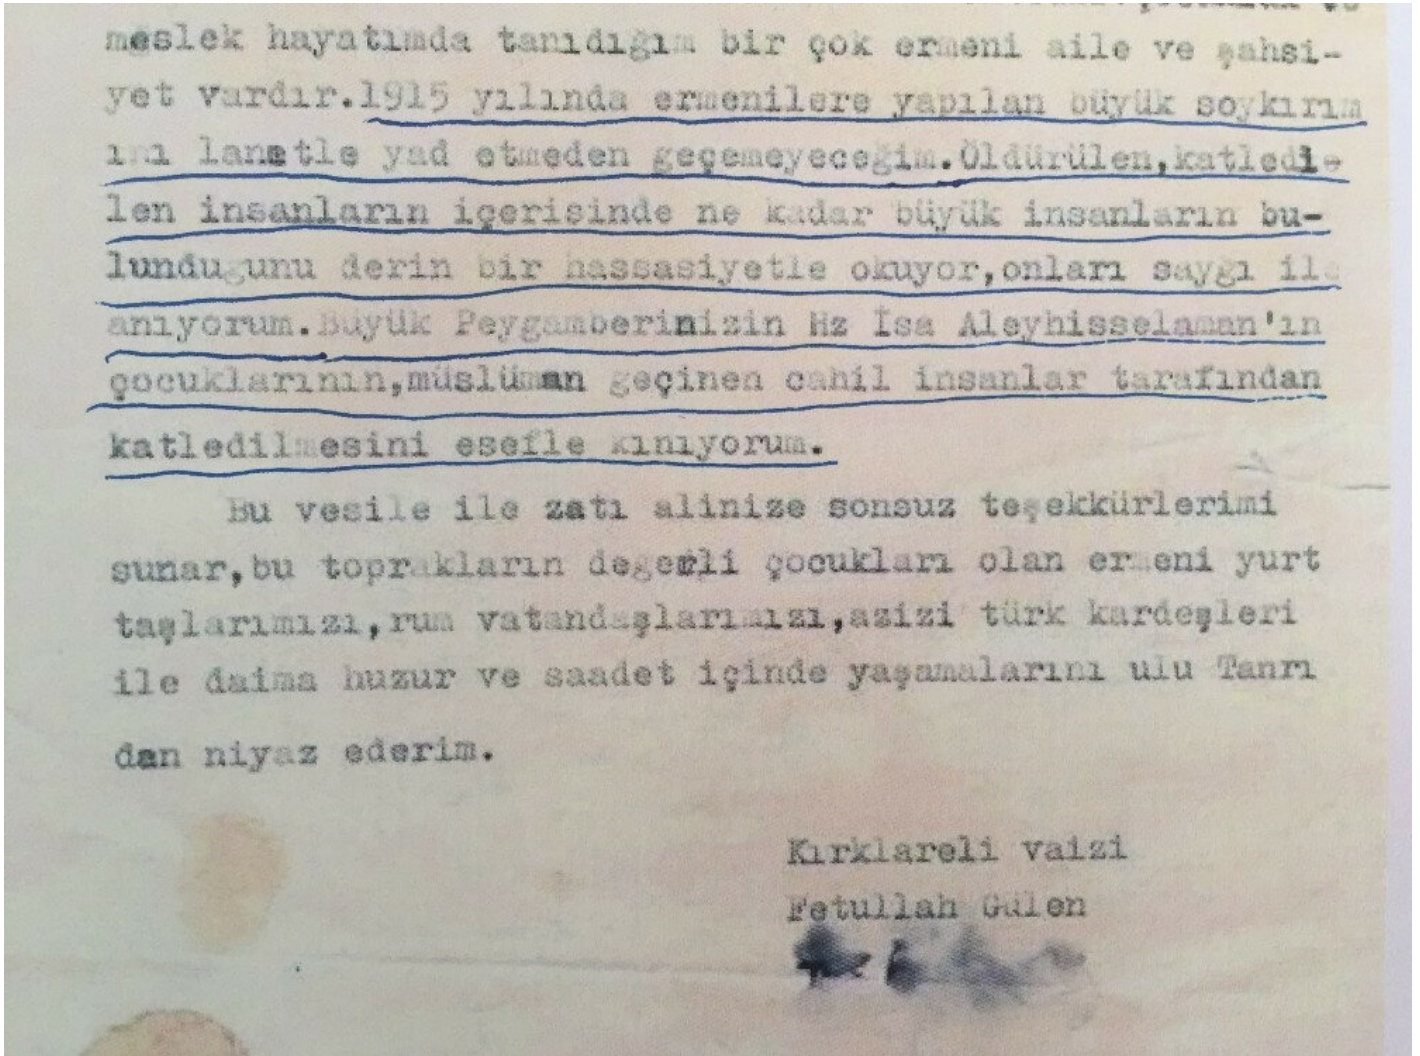 meslek hayatımda tanıdığım bir çok ermeni aile ve şahsi-
yet vardır.1915 yılında ermenilere yapılan büyük soykırım
ını lanetle yad etmeden geçemeyeceğim.Öldürülen,katledie
len insanların içerisinde ne kadar büyük insanların bu-
lundugunu derin bir hassasiyetle okuyor,onları saygı ile
anıyorum.Büyük Peygamberinizin Hz İsa Aleyhisselaman'ın
çocuklarının,müslüman geçinen cahil insanlar tarafından
katledilmesini esefle kınıyorum.
Bu vesile ile zatı alinize sonsuz teşekkürlerimi
sunar,bu toprakların degerli çocukları olan ermeni yurt
taşlarımızı,rum vatandaşlarımızı,azizi türk kardeşleri
ile daima huzur ve saadet içinde yaşamalarını ulu Tanrı
dan niyaz ederim.
Kırklareli vaizi
Fetullah Gülen